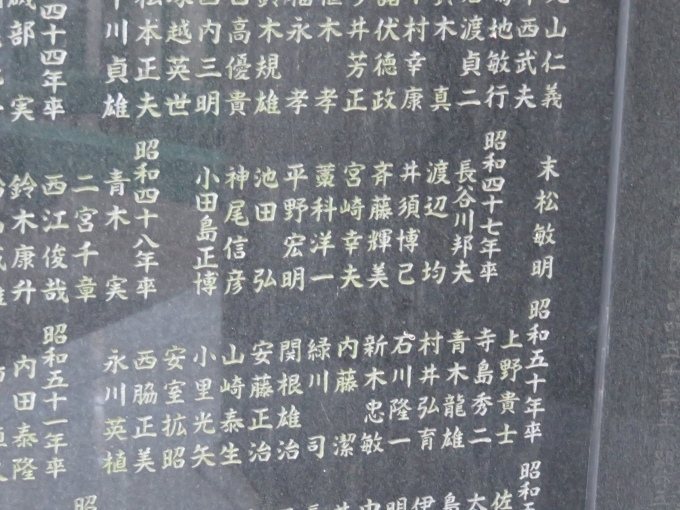 山仁義
西武夫
地敏行
渡貞二
木真
村幸康
諸伏徳政
井芳正
木孝
福永孝
鈴木規雄
日高優貴
内三明
塚越英世
松本正夫
川貞雄
四十四年卒
磯部実
末松敏明
昭和四十七年卒
長谷川邦夫
渡辺均
井須博己
斉藤輝美
宮崎幸夫
藁科洋一
平野宏明
池田弘
神尾信彦
小田島正博
昭和四十八年卒
青木実
二宮千章
西江俊哉
鈴木康升
昭和五十年卒
上野貴士
寺島秀二
青木龍雄
村井弘育
石川隆一
新木忠敏
内藤潔
緑川司
関根雄治
安藤正治
山崎泰生
小里光矢
安室拡昭
西脇正美
永川英植
昭和五十一年卒
内田泰隆
昭和五
佐
大
島
伊
明
昭